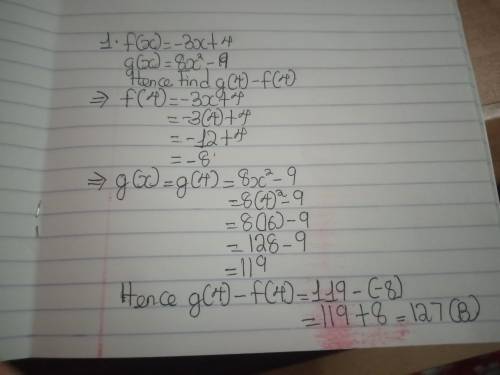 1. f(x)=-3x+4
g(x)=8x²-9
Hence find g(4)-f(4)
⇒ f(4)=-3x+4
=-3(4)+4
=-12+4
=-8.
⇒ g(x)=g(4)=8x²-9
=8(4)²-9
=8(16)-9
=128-9
=119
Hence g(4)-f(4)=119-(-8)
=119+8=127(B)